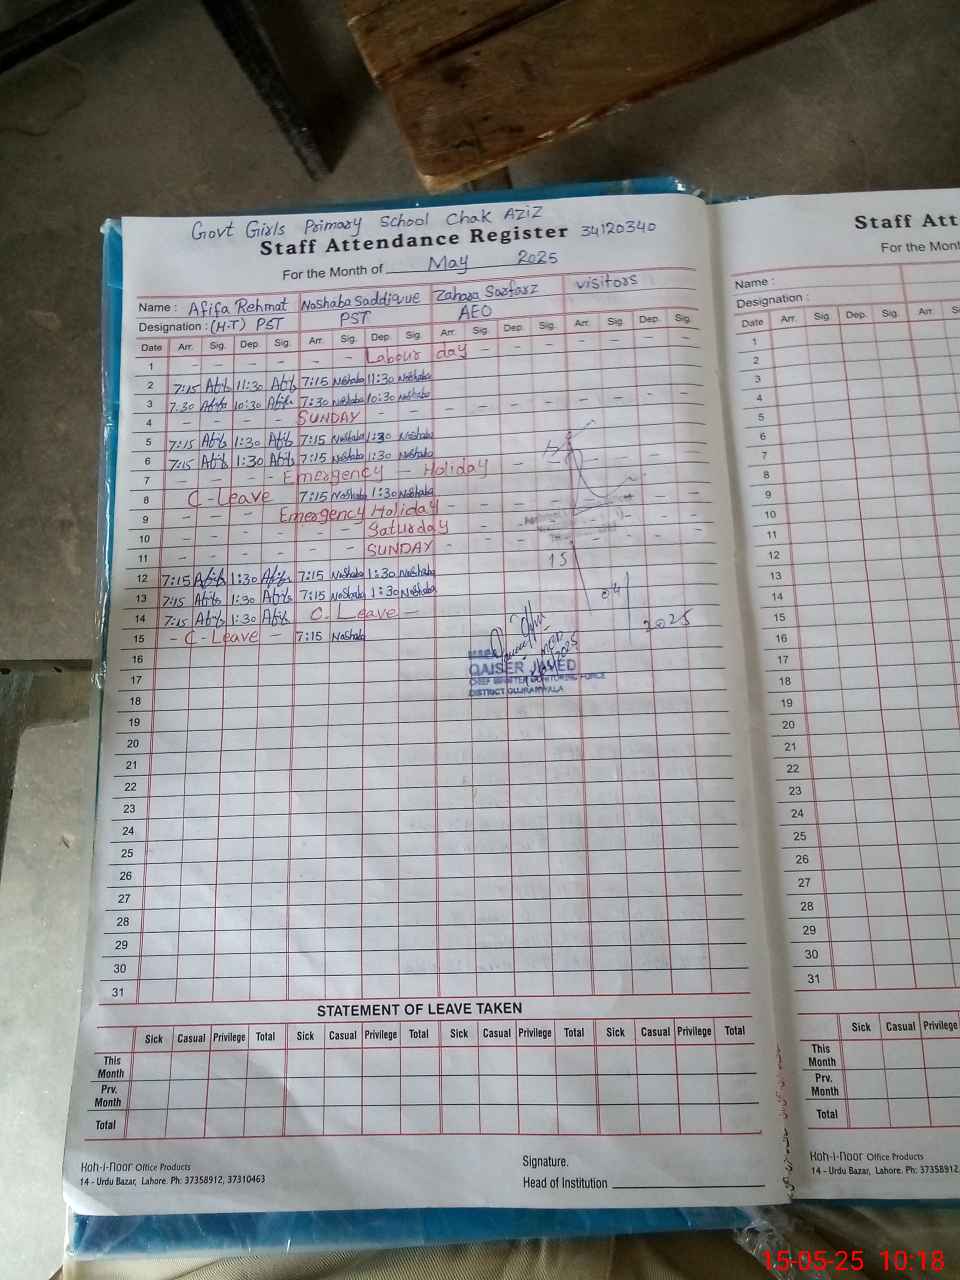 Govt Girls Primary School Chak Aziz
Staff Attendance Register 34120340
For the Month of May 2025
Name : Afifa Rehmat Noshaba Saddique Zahara Sarfarz visitors
Designation : (H.T) PST PST AEO
Date Arr. Sig. Dep. Sig. Arr. Sig. Dep. Sig. Arr. Sig. Dep. Sig. Arr. Sig. Dep. Sig.
1 - - - - - - Labour day - - - - - - -
2 7:15 Afifa 11:30 Afifa 7:15 Noshaba 11:30 Noshaba
3 7:30 Afifa 10:30 Afifa 7:30 Noshaba 10:30 Noshaba
4 - - - - SUNDAY - - - - - - - - - -
5 7:15 Afifa 1:30 Afifa 7:15 Noshaba 1:30 Noshaba
6 7:15 Afifa 1:30 Afifa 7:15 Noshaba 1:30 Noshaba
7 - - - - Emergency - Holiday - - - -
8 C-Leave 7:15 Noshaba 1:30 Noshaba
9 - - - Emergency Holiday - - - -
10 - - - - - - Saturday - - - -
11 - - - - - - SUNDAY - - - -
12 7:15 Afifa 1:30 Afifa 7:15 Noshaba 1:30 Noshaba
13 7:15 Afifa 1:30 Afifa 7:15 Noshaba 1:30 Noshaba
14 7:15 Afifa 1:30 Afifa C-Leave -
15 - C-Leave - 7:15 Noshaba
16
17
18
19
20
21
22
23
24
25
26
27
28
29
30
31
15
2025
QAISER JAVED
CHIEF MINISTER MONITORING FORCE
DISTRICT GUJRANWALA
STATEMENT OF LEAVE TAKEN
Sick Casual Privilege Total Sick Casual Privilege Total Sick Casual Privilege Total Sick Casual Privilege Total
This Month
Prv. Month
Total
Koh-i-noor Office Products
14 - Urdu Bazar, Lahore. Ph: 37358912, 37310463
Signature.
Head of Institution
Staff Att
For the Mont
Name :
Designation :
Date Arr. Sig. Dep. Sig. Arr.
1
2
3
4
5
6
7
8
9
10
11
12
13
14
15
16
17
18
19
20
21
22
23
24
25
26
27
28
29
30
31
Sick Casual Privilege
This Month
Prv. Month
Total
Koh-i-noor Office Products
14 - Urdu Bazar, Lahore. Ph: 37358912,
15-05-25 10:18